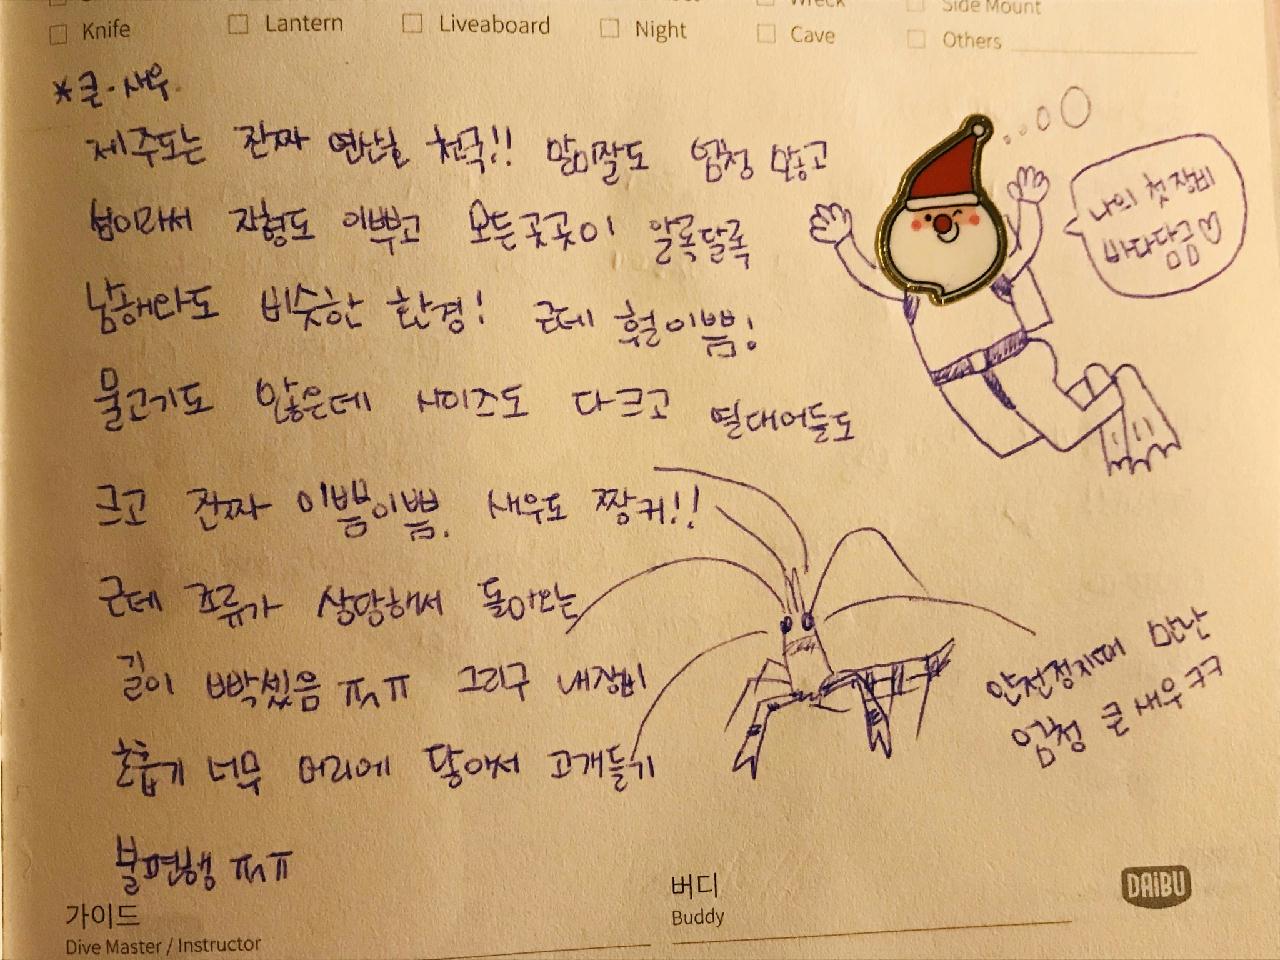 Wreck
Side Mount
Knife
Lantern
Liveaboard
Night
Cave
Others
*큰·새우
제주도는 진짜 연산호 천국!! 말미잘도 엄청 많고
섬이라서 지형도 이쁘고 모든곳곳이 알록달록
남해랑도 비슷한 환경! 근데 훨 이쁨!
물고기도 많은데 사이즈도 다 크고 열대어들도
크고 진짜 이쁨이쁨. 새우도 짱커!!
근데 조류가 상당해서 돌아오는
길이 빡셌음 ㅠㅅㅠ 그리구 내장비
호흡기 너무 머리에 닿아서 고개들기
불편행 ㅠㅅㅠ
나의 첫 잭백
안전정지때 만난
엄청 큰 새우 ㅋㅋ
가이드
Dive Master / Instructor
버디
Buddy
DAiBU